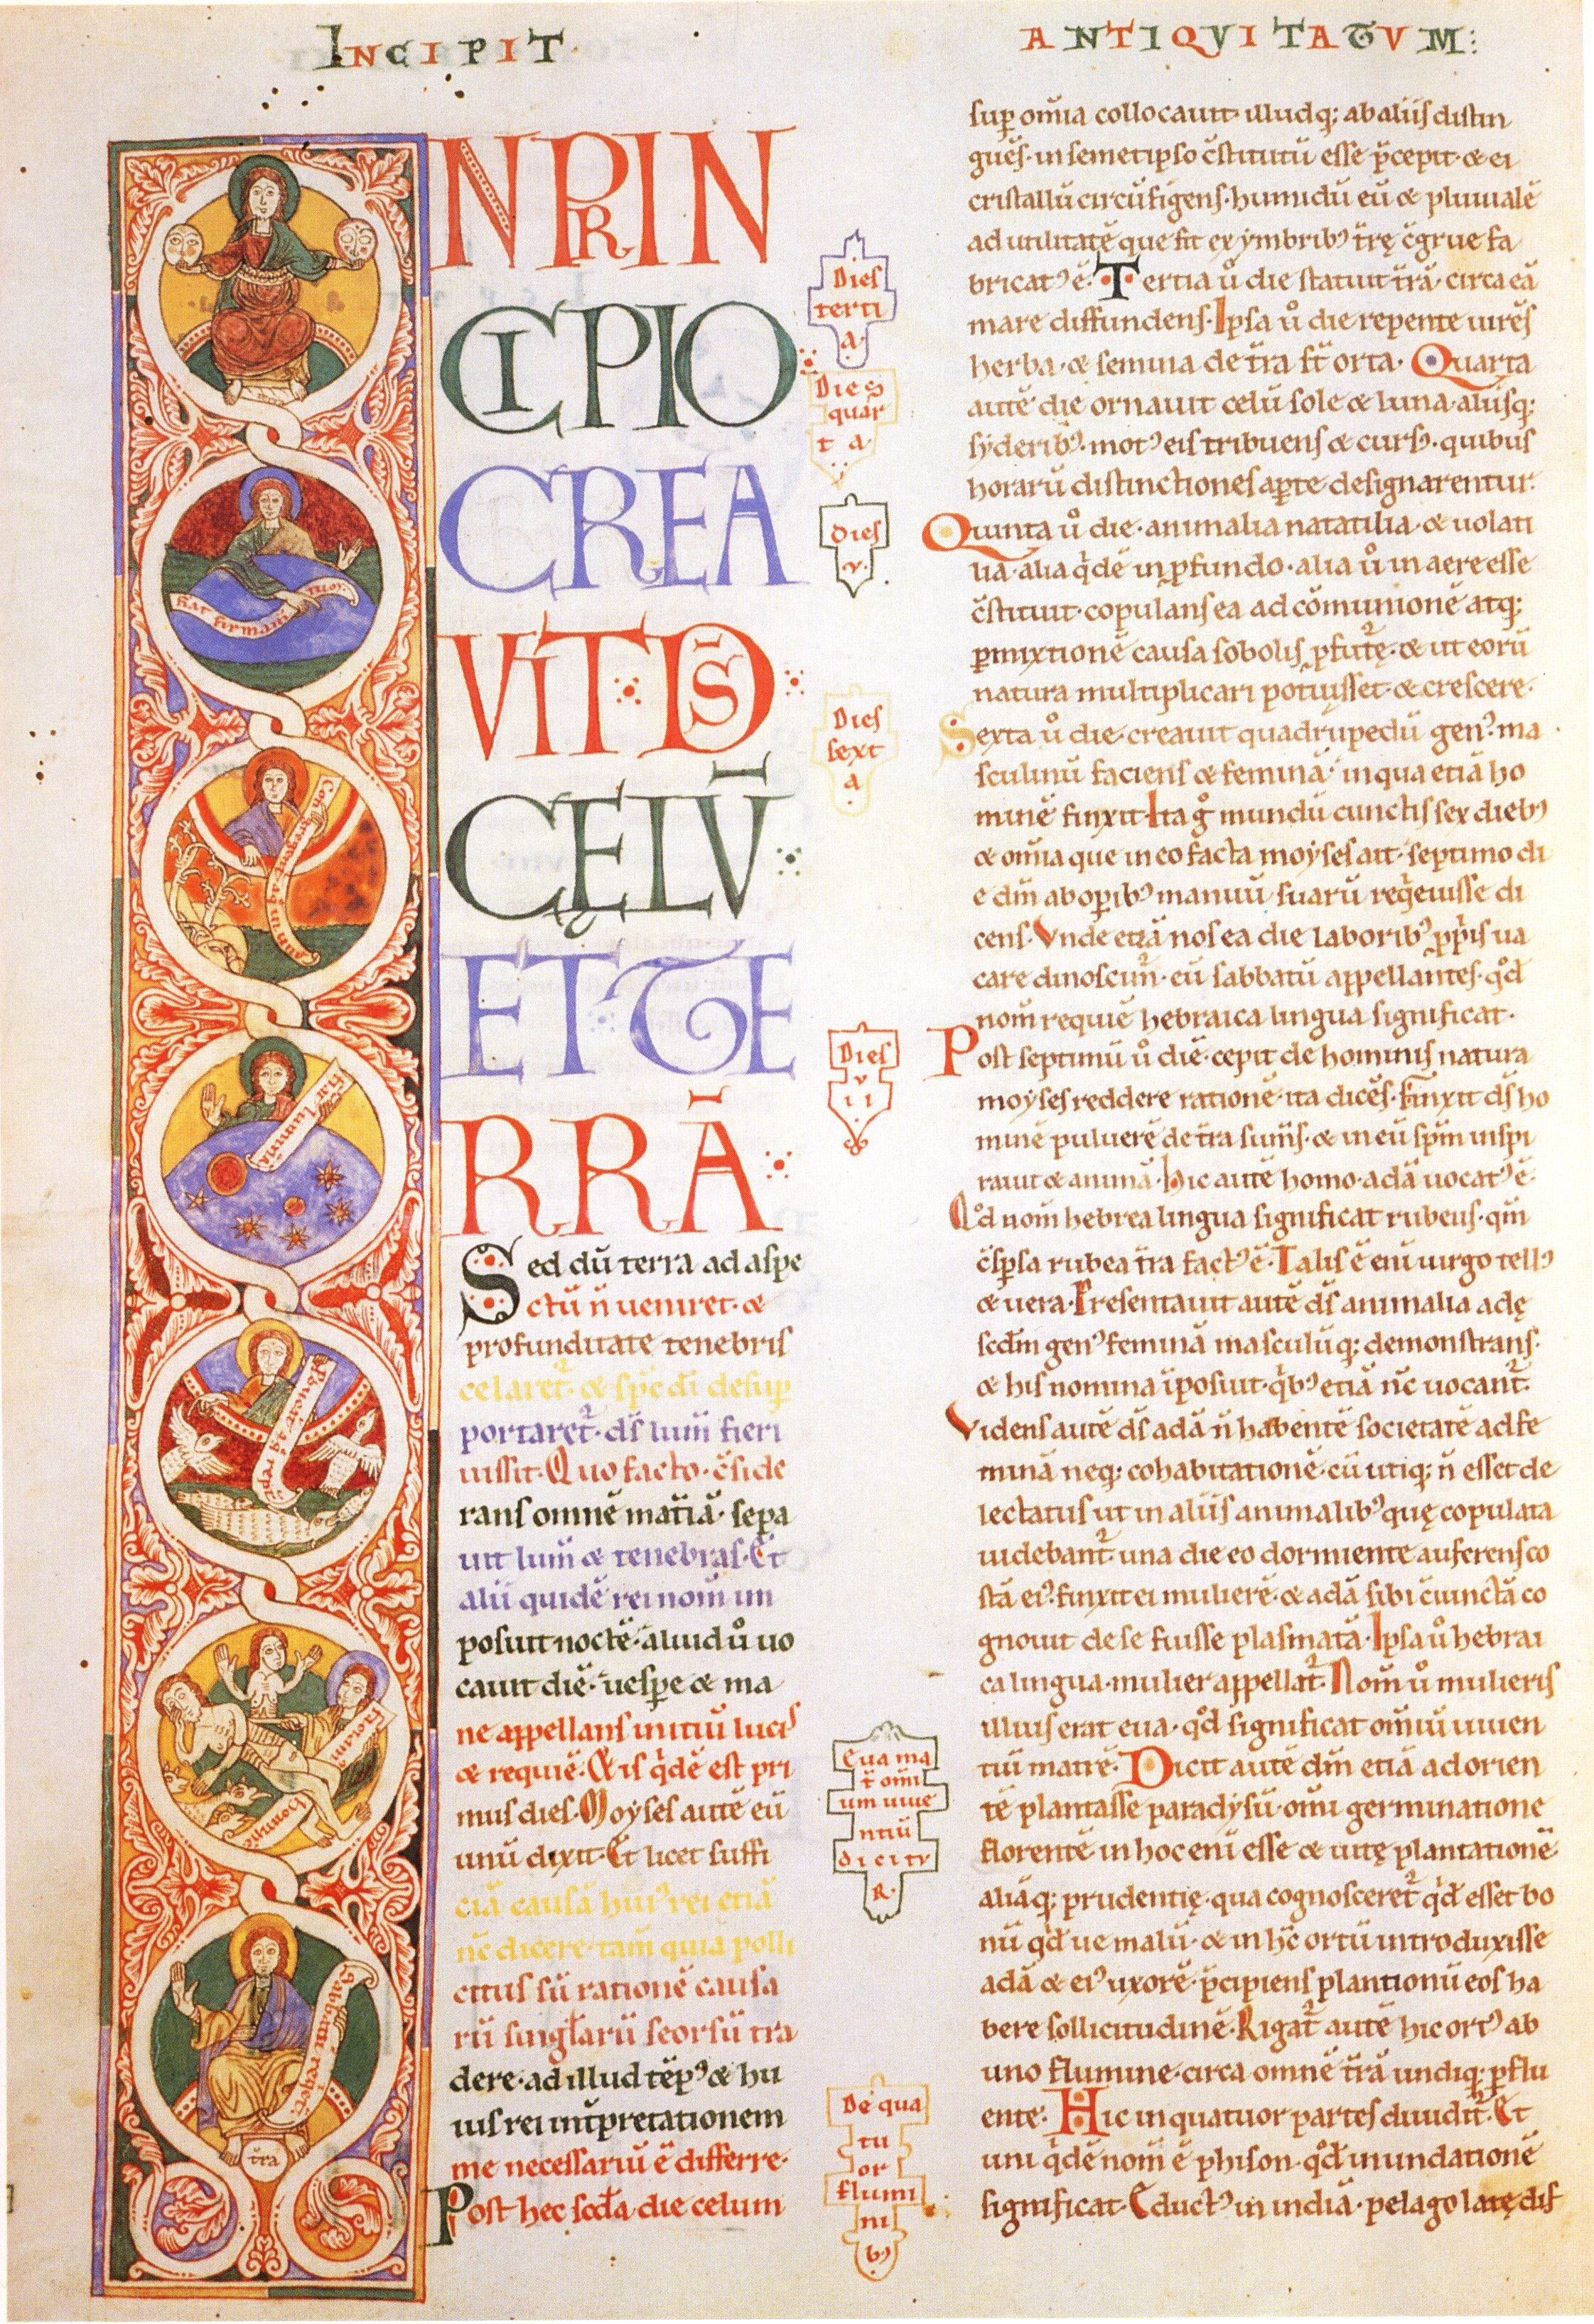 INCIPIT
ANTIQVITATVM:
N PRIN
CIPIO
CREA
VIT DS̄
CELV̄
ET TE
RRĀ
Sed dū terra ad aspe
ctū n̄ ueniret· &
profunditate tenebris
celaret᷑· & sp̄c dī desup
portaret᷑· ds̄ lum̄ fieri
iussit· Quo facto· c̄side
rans omnē mat̄iā· sepa
uit lum̄ & tenebras· Et
alii quidē rei nom̄ im
posuit noctē· aliud ů uo
cauit diē· uesꝑe & ma
ne appellans initiū lucis
& requiē· & is q̇dē est pri
mus dies· Moyses autē eū
unū dixit· Et licet suffi
ciā causā huiꝰ rei etiā
nc̄ dicere· tam̄ quia polli
citus sū rationē causa
rū singƚarū seorsū tra
dere· ad illud tēpꝰ & hu
ius rei int̄pretationem
me necessariū ē differre·
Post hec scd̄a die celum
sup om̄ia collocauit illudq; ab aliis distin
guēs· in semetipso c̄stitutū esse p̄cepit· & ei
cristallū circūfigens· humidū eū & pluuialē
ad utilitatē que fit ex ymbribꝰ t̄rę c̄grue fa
bricatꝰ ē· Tertia ů die statuit t̄rā· circa eā
mare diffundens· Ipsa ů die repente uirēs
herba· & semina de t̄ra st̄ orta· Quarta
autē die ornauit celū sole & luna· aliisq;
syderibꝰ· motꝰ eis tribuens & cursꝰ· quibus
horarū distinctiones aꝑte designarentur·
Quinta ů die· animalia natatilia· & uolati
lia· alia q̇dē in ꝓfundo· alia ů in aere esse
c̄stituit· copulans ea ad cōmunionē atq;
ꝑmixtionē causa sobolis ꝓfut᷑ę· & ut eorū
natura multiplicari potuisset & crescere·
Sexta ů die· creauit quadrupedū genꝰ· ma
sculinū faciens & feminā· in qua etiā ho
minē finxit· Ita g̊ mundū cunctis sex diebꝰ
& om̄ia que in eo facta moyses ait· septimo di
e dm̄ ab oꝑibꝰ manuū suarū reqeuisse di
cens· Vnde etiā nos ea die laboribꝰ ꝓpris ua
care dinoscun᷑· eū sabbatū appellantes· qd̄
nom̄ requiē hebraica lingua significat·
Post septimū ů diē· cepit de hominis natura
moyses reddere rationē· ita dicēs· Finxit ds̄ ho
minē puluerē de t̄ra sum̄s· & in eū sp̄m inspi
rauit & animā· Hic autē homo· adā uocatꝰ ē·
Qd̄ nom̄ hebrea lingua significat rubeus· qm̄
c̄sꝑsa rubea t̄ra factꝰ ē· Talis ē eni uirgo tellꝰ
& uera· Presentauit autē ds̄ animalia adę
scd̄m genꝰ feminā masculūq; demonstrans·
& his nomina īposuit· q̇bꝰ etiā nc̄ uocant᷑·
Videns autē ds̄ adā n̄ habentē societatē ad fe
minā neq; cohabitationē· cū utiq; n̄ esset de
lectatus ut in aliis animalibꝰ quę copulata
uidebant᷑· una die eo dormiente auferens co
stā eiꝰ· finxit ei mulierē· & adā sibi c̄iunctā co
gnouit de se fuisse plasmatā· Ipsa ů hebrai
ca lingua· mulier appellat᷑· Nom̄ ů mulieris
illius erat eua· qd̄ significat om̄iū uiuen
tiū matrē· Dicit autē dm̄ etiā ad orien
tē plantasse paradysū· om̄i germinatione
florentē· in hoc eni esse & uitę plantationē
aliāq; prudentię· qua cognosceret᷑ qd̄ esset bo
nū qd̄ue malū· & in hc̄ ortū introduxisse
adā & eiꝰ uxorē· p̄cipiens plantionū eos ha
bere sollicitudinē· Rigat᷑ autē hic ortꝰ ab
uno flumine· circa omnē t̄rā undiq; ꝑflu
ente· Hic in quatuor partes diuidit᷑· Et
uni q̇dē nom̄ ē phison· qd̄ inundationē
significat· Eductꝰ in indiā· pelago latę dif
Dies
terti
a·
Dies
quar
ta
dies
v·
Dies
sext
a
Dies
v
ii
Eua ma
t̄ om̄i
um uiue
ntiū
dicitv
R·
De qua
tu
or
flumi
ni
bꝰ
fiat firmamtuoy·
Congregent᷑ aq̄ in unū
fiat luminā
Pducāt aq̄ rept
faciam
hominē
Sabbatū reqet·
t̄ra